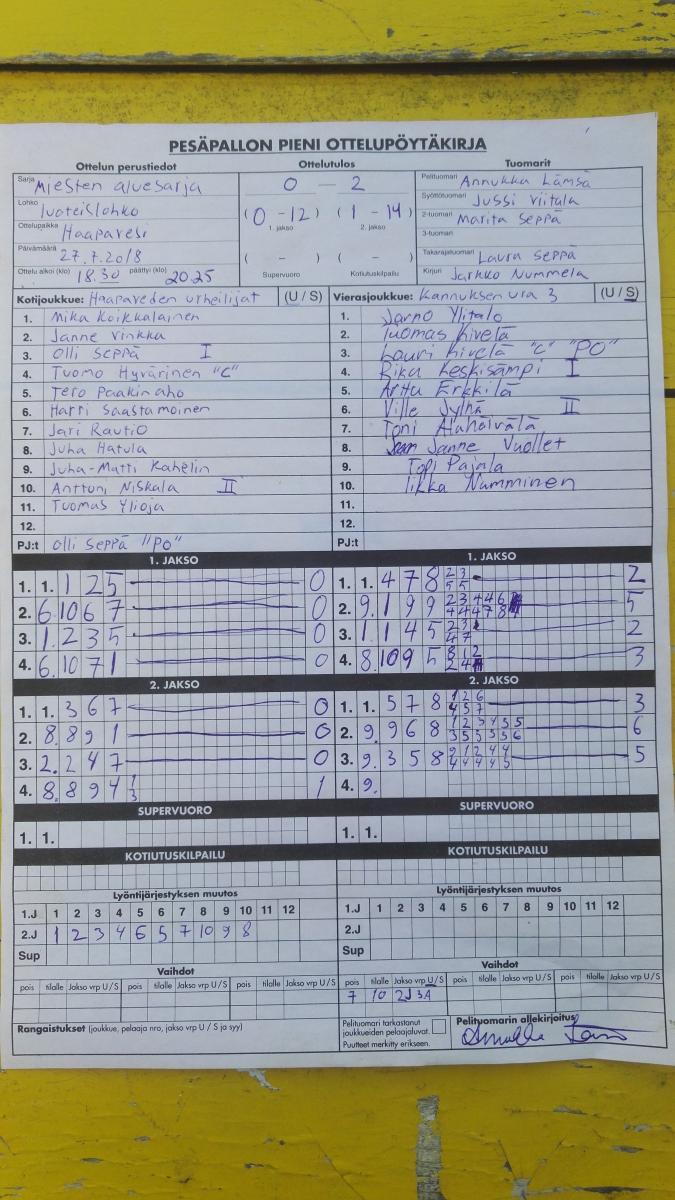 PESÄPALLON PIENI OTTELUPÖYTÄKIRJA
Ottelun perustiedot Ottelutulos Tuomarit
Sarja Miesten aluesarja 0 - 2 Pelituomari Annukka Lämsä
Lohko luoteislohko (0 - 12) (1 - 14) Syöttötuomari Jussi Viitala
Ottelupaikka Haapavesi 1. jakso 2. jakso 2-tuomari Marita Seppä
Päivämäärä 27.7.2018 ( - ) ( - ) 3-tuomari
Takarajatuomari Laura Seppä
Ottelu alkoi (klo) 18.30 päättyi (klo) 20.25 Supervuoro Kotiutuskilpailu Kirjuri Jarkko Nummela
Kotijoukkue: Haapaveden urheilijat (U / S) Vierasjoukkue: Kannuksen ura 3 (U / S)
1. Mika Koikkalainen 1. Jarno Ylitalo
2. Janne Vinkka 2. Tuomas Kivelä
3. Olli Seppä I 3. Lauri Kivelä "C" "PO"
4. Tuomo Hyvärinen "C" 4. Riku Keskisämpi I
5. Tero Paakinaho 5. Arttu Erkkilä
6. Harri Saastamoinen 6. Ville Jylhä II
7. Jari Rautio 7. Toni Alaheivälä
8. Juha Hatula 8. Janne Vuollet
9. Juha-Matti Kahelin 9. Topi Pajala
10. Anttoni Niskala II 10. Iikka Numminen
11. Tuomas Ylioja 11.
12. 12.
PJ:t Olli Seppä "PO" PJ:t
1. JAKSO 1. JAKSO
1. 1. 1 2 5 0 1. 1. 4 7 8 2 3 5 5 2
2. 6. 10 6 7 0 2. 9. 1 9 9 2 3 4 4 6 4 4 4 7 8 5
3. 1. 2 3 5 0 3. 1. 1 4 5 2 3 4 7 2
4. 6. 10 7 1 0 4. 8. 10 9 5 8 1 2 2 4 3
2. JAKSO 2. JAKSO
1. 1. 3 6 7 0 1. 1. 5 7 8 1 2 6 4 5 7 3
2. 8. 8 9 1 0 2. 9. 9 6 8 1 2 3 4 5 5 3 5 5 5 5 6 6
3. 2. 2 4 7 0 3. 9. 3 5 8 9 1 2 4 4 4 4 4 4 5 5
4. 8. 8 9 4 1 3 1 4. 9.
SUPERVUORO SUPERVUORO
1. 1. 1. 1.
KOTIUTUSKILPAILU KOTIUTUSKILPAILU
Lyöntijärjestyksen muutos Lyöntijärjestyksen muutos
1.J 1 2 3 4 5 6 7 8 9 10 11 12 1.J 1 2 3 4 5 6 7 8 9 10 11 12
2.J 1 2 3 4 6 5 7 10 9 8 2.J
Sup Sup
Vaihdot Vaihdot
pois tilalle Jakso vrp U/S pois tilalle Jakso vrp U/S pois tilalle Jakso vrp U/S pois tilalle Jakso vrp U/S pois tilalle Jakso vrp U/S pois tilalle Jakso vrp U/S
7 10 2J 3A
Rangaistukset (joukkue, pelaaja nro, jakso vrp U / S ja syy) Pelituomari tarkastanut joukkueiden pelaajaluvat. Pelituomarin allekirjoitus
Puutteet merkitty erikseen.